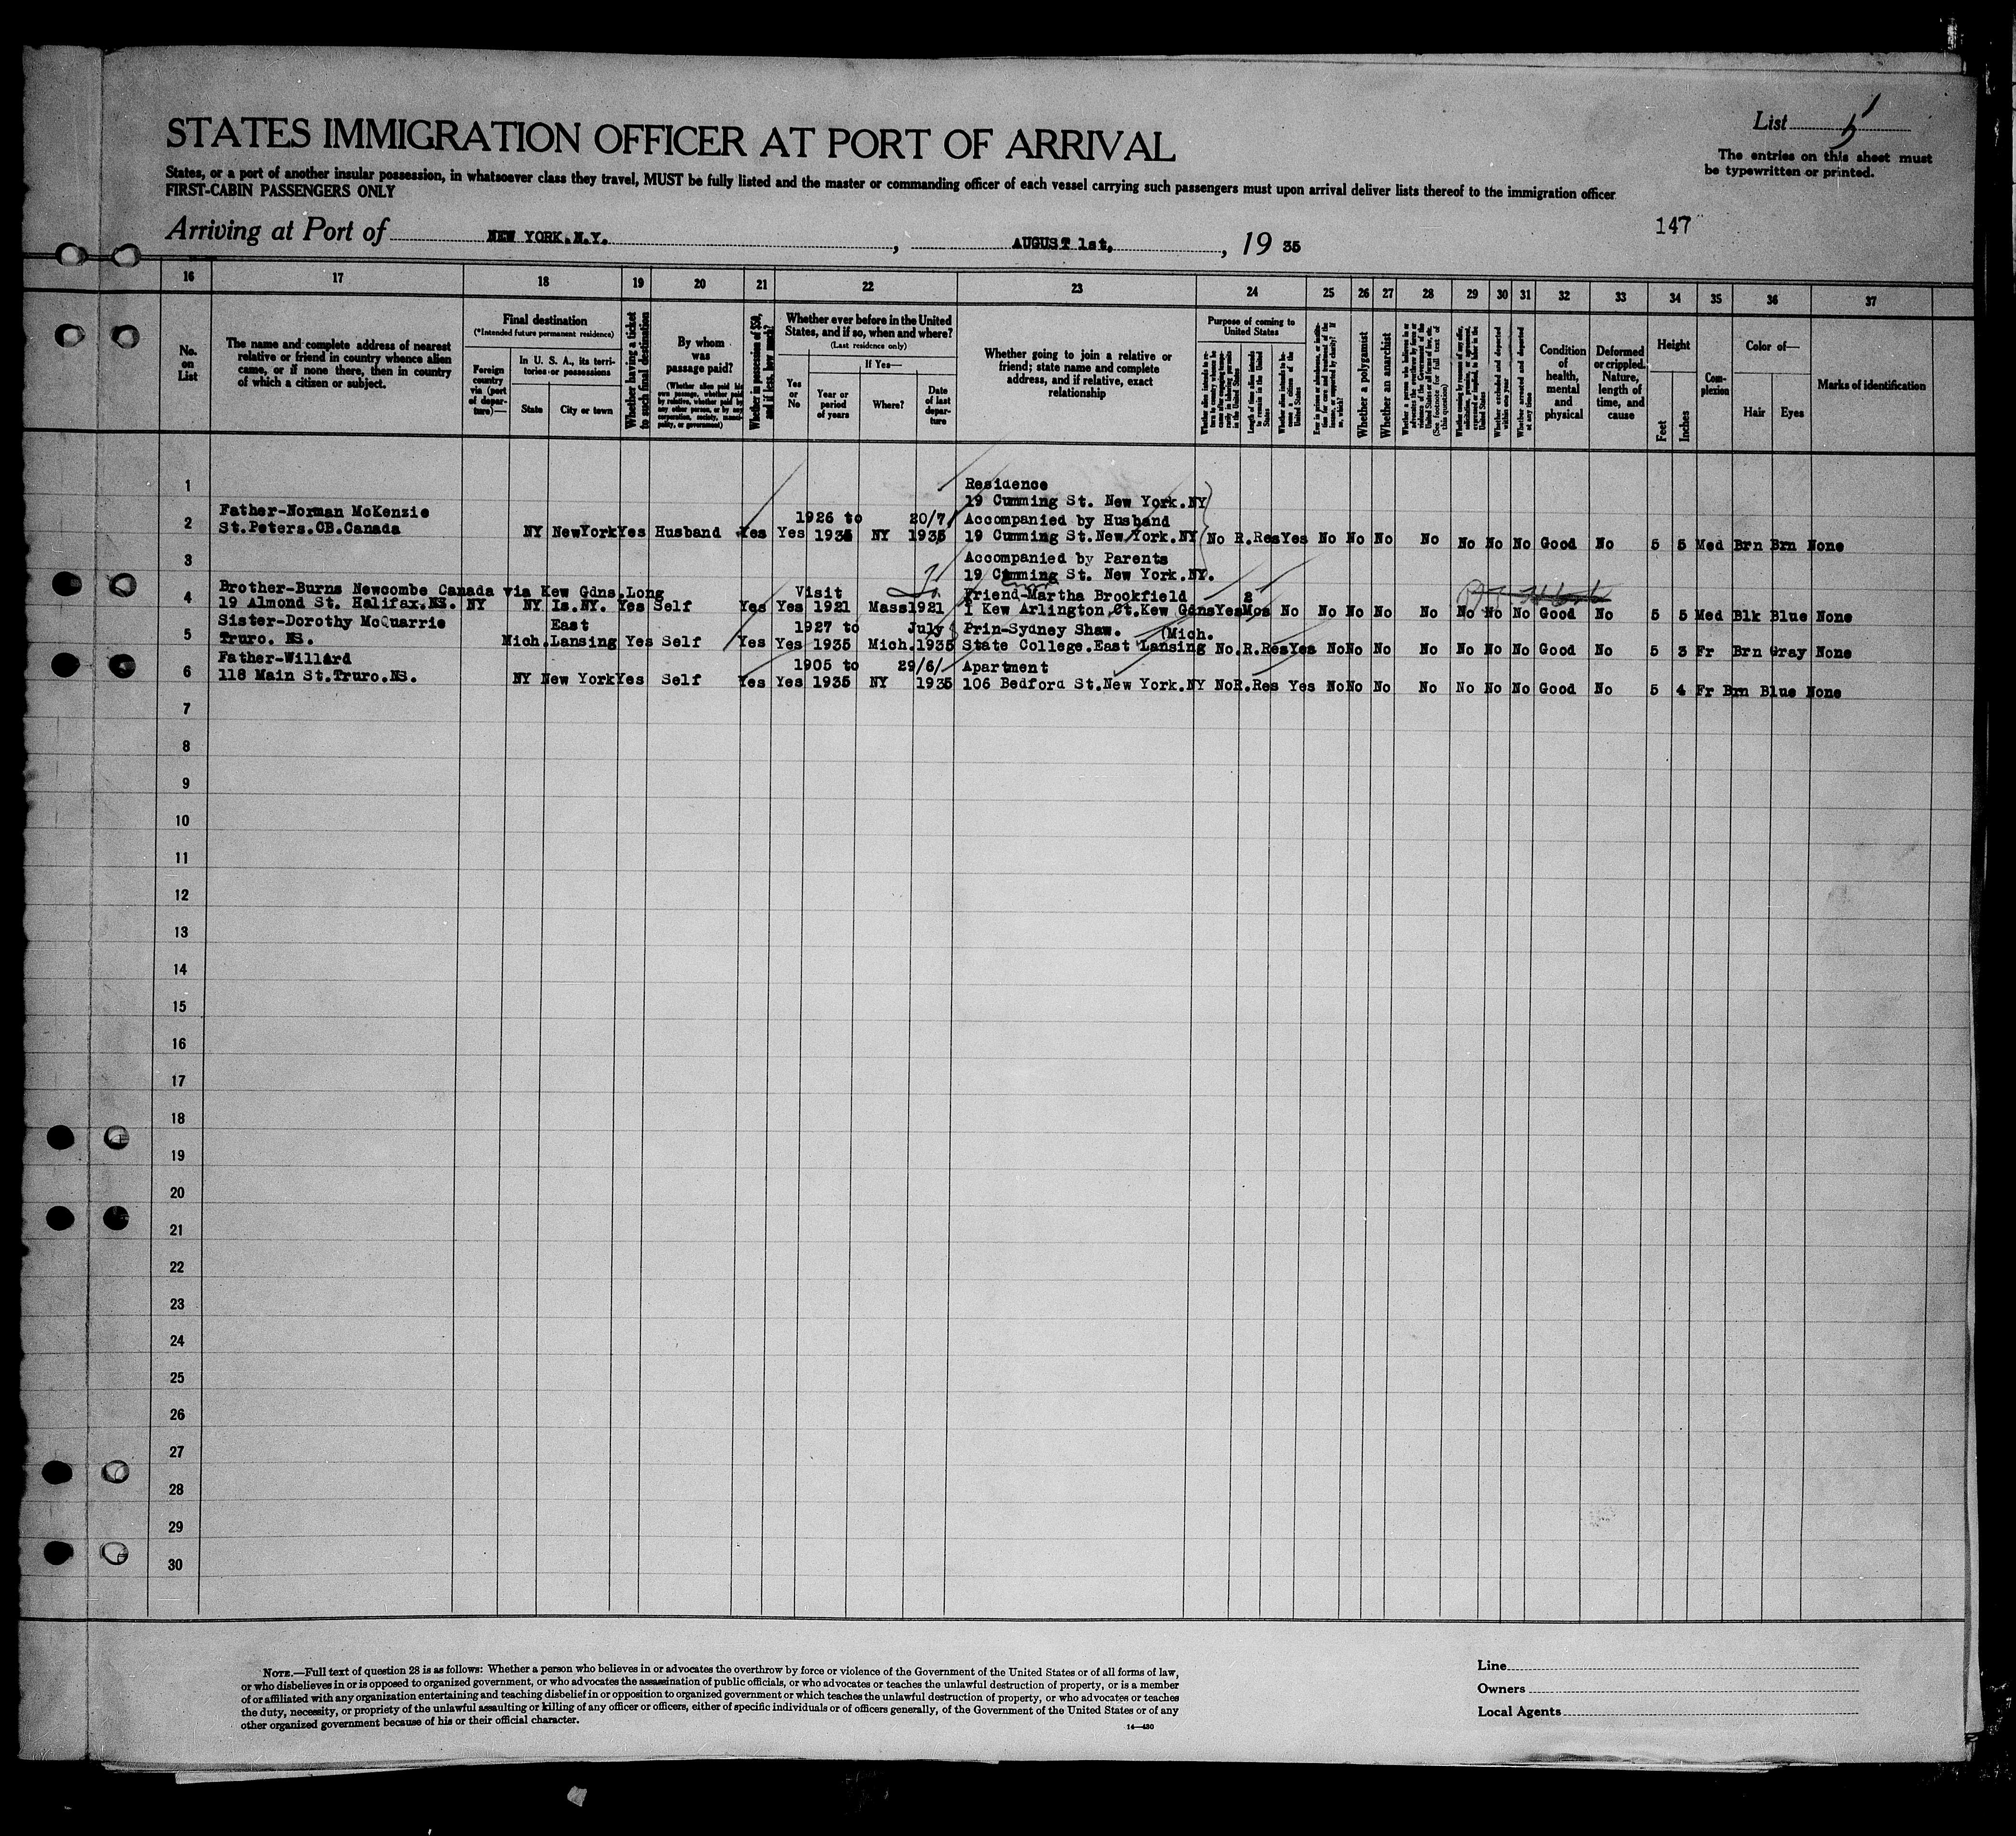 List 5
STATES IMMIGRATION OFFICER AT PORT OF ARRIVAL
The entries on this sheet must
be typewritten or printed.
States, or a port of another insular possession, in whatsoever class they travel, MUST be fully listed and the master or commanding officer of each vessel carrying such passengers must upon arrival deliver lists thereof to the immigration officer
FIRST-CABIN PASSENGERS ONLY
147
Arriving at Port of NEW YORK.N.Y. , AUGUST 1st, , 19 35
16 17 18 19 20 21 22 23 24 25 26 27 28 29 30 31 32 33 34 35 36 37
No. on List
The name and complete address of nearest relative or friend in country whence alien came, or if none there, then in country of which a citizen or subject.
Final destination
(*Intended future permanent residence)
Foreign country via (port of departure)—
In U. S. A., its territories or possessions
State
City or town
Whether having a ticket to such final destination
By whom was passage paid?
(Whether alien paid his own passage, whether paid by relative, whether paid by any other person, or by any corporation, society, municipality, or government)
Whether in possession of $50, and if less, how much?
Whether ever before in the United States, and if so, when and where?
(Last residence only)
Yes or No
If Yes—
Year or period of years
Where?
Date of last departure
Whether going to join a relative or friend; state name and complete address, and if relative, exact relationship
Purpose of coming to United States
Whether alien intends to return to country whence he came after engaging temporarily in laboring pursuits in the United States
Length of time alien intends to remain in the United States
Whether alien intends to become a citizen of the United States
Ever in prison or almshouse, or institution for care and treatment of the insane, or supported by charity? If so, which?
Whether a polygamist
Whether an anarchist
(See footnote for full text of this question)
Whether excluded and deported within one year
Whether arrested and deported at any time
Condition of health, mental and physical
Deformed or crippled. Nature, length of time, and cause
Height
Feet
Inches
Complexion
Color of—
Hair
Eyes
Marks of identification
1 Residence
19 Cumming St. New York.NY
2 Father-Norman McKenzie 1926 to 20/7/ Accompanied by Husband
St.Peters.CB.Canada NY NewYork Yes Husband Yes Yes 1935 NY 1935 19 Cumming St.New York.NY No R.Res Yes No No No No No No No Good No 5 5 Med Brn Brn None
3 Accompanied by Parents
19 Cumming St. New York.NY.
4 Brother-Burns Newcombe Canada via Kew Gdns.Long Visit Friend-Martha Brookfield 2
19 Almond St. Halifax.NS. NY NY Is.NY. Yes Self Yes Yes 1921 Mass 1921 1 Kew Arlington Ct.Kew Gdns Yes Mos No No No No No No No No Good No 5 5 Med Blk Blue None
5 Sister-Dorothy McQuarrie East 1927 to July Prin-Sydney Shaw. (Mich.
Truro. NS. Mich.Lansing Yes Self Yes Yes 1935 Mich.1935 State College.East Lansing No.R.Res Yes No No No No No No No Good No 5 3 Fr Brn Gray None
6 Father-Willard 1905 to 29/6/ Apartment
118 Main St.Truro.NS. NY New York Yes Self Yes Yes 1935 NY 1935 106 Bedford St.New York.NY No R.Res Yes No No No No No No No Good No 5 4 Fr Brn Blue None
7
8
9
10
11
12
13
14
15
16
17
18
19
20
21
22
23
24
25
26
27
28
29
30
NOTE.—Full text of question 28 is as follows: Whether a person who believes in or advocates the overthrow by force or violence of the Government of the United States or of all forms of law,
or who disbelieves in or is opposed to organized government, or who advocates the assassination of public officials, or who advocates or teaches the unlawful destruction of property, or is a member
of or affiliated with any organization entertaining and teaching disbelief in or opposition to organized government or which teaches the unlawful destruction of property, or who advocates or teaches
the duty, necessity, or propriety of the unlawful assaulting or killing of any officer or officers, either of specific individuals or of officers generally, of the Government of the United States or of any
other organized government because of his or their official character.
14—430
Line
Owners
Local Agents